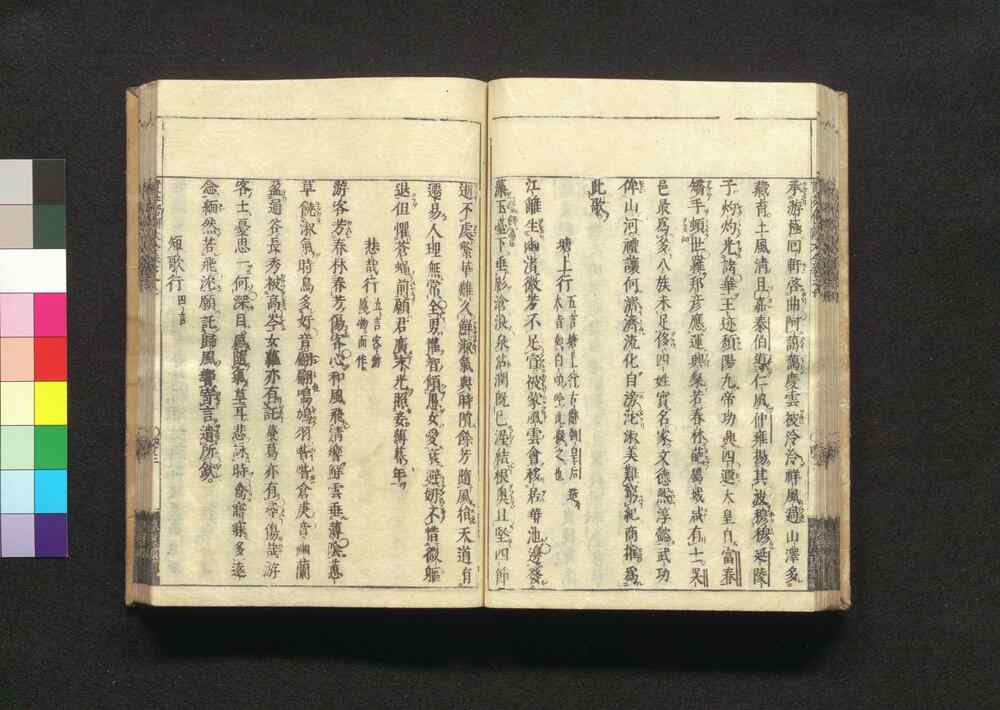 承游極回軒啓曲阿藹藹慶雲被泠泠祥風過山澤多
藏育土風清且嘉泰伯導仁風仲雍揚其波穆穆延陵
子灼灼光諸華王迹頹陽九帝功興四遐大皇自富春
矯手頓世羅邦彦應運興粲若春林葩屬城咸有士呉
邑最爲多八族未足侈四姓實名家文德熙淳懿武功
侔山河禮讓何濟濟流化自滂沱淑美難窮紀商搉爲
此歌
塘上行
江蘺生幽渚微芳不足宣被蒙風雲會移居華池邊發
藻玉臺下垂影滄浪泉沾潤既已渥結根奥且堅四節
逝不處繁華難久鮮淑氣與時隕餘芳隨風捐天道有
遷易人理無常全男懽智傾愚女愛衰避妍不惜微軀
退但懼蒼蠅前願君廣末光照妾薄暮年
悲哉行
游客芳春林春芳傷客心和風飛清響鮮雲垂薄陰蕙
草饒淑氣時鳥多好音翩翩鳴鳩羽喈喈倉庚音幽蘭
盈通谷長秀被高岑女蘿亦有託蔓葛亦有尋傷哉游
客士憂思一何深目感隨氣草耳悲詠時禽寤寐多遠
念緬然若飛沈願託歸風響寄言遺所欽
短歌行 四言